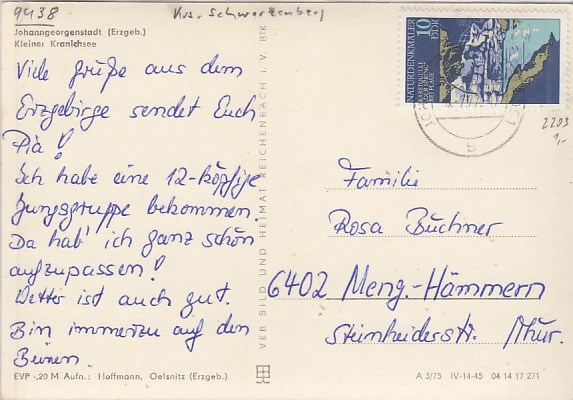 9438 Krs. Schwarzenberg
Johanngeorgenstadt (Erzgeb.)
Kleiner Kranichsee
Viele Grüße aus dem
Erzgebirge sendet Euch
Pia!
Ich habe eine 12-köpfige
Jungsgruppe bekommen.
Da hab' ich ganz schön
aufzupassen!
Wetter ist auch gut.
Bin immerzu auf den
Beinen.
EVP -,20 M Aufn.: Hoffmann, Oelsnitz (Erzgeb.)
VEB BILD UND HEIMAT REICHENBACH i. V. BTK
NATURDENKMÄLER
10
DDR
b
2203
1,-
Familie
Rosa Büchner
6402 Meng.-Hämmern
Steinheiderstr. Thür.
A 3/75 IV-14-45 04 14 17 271